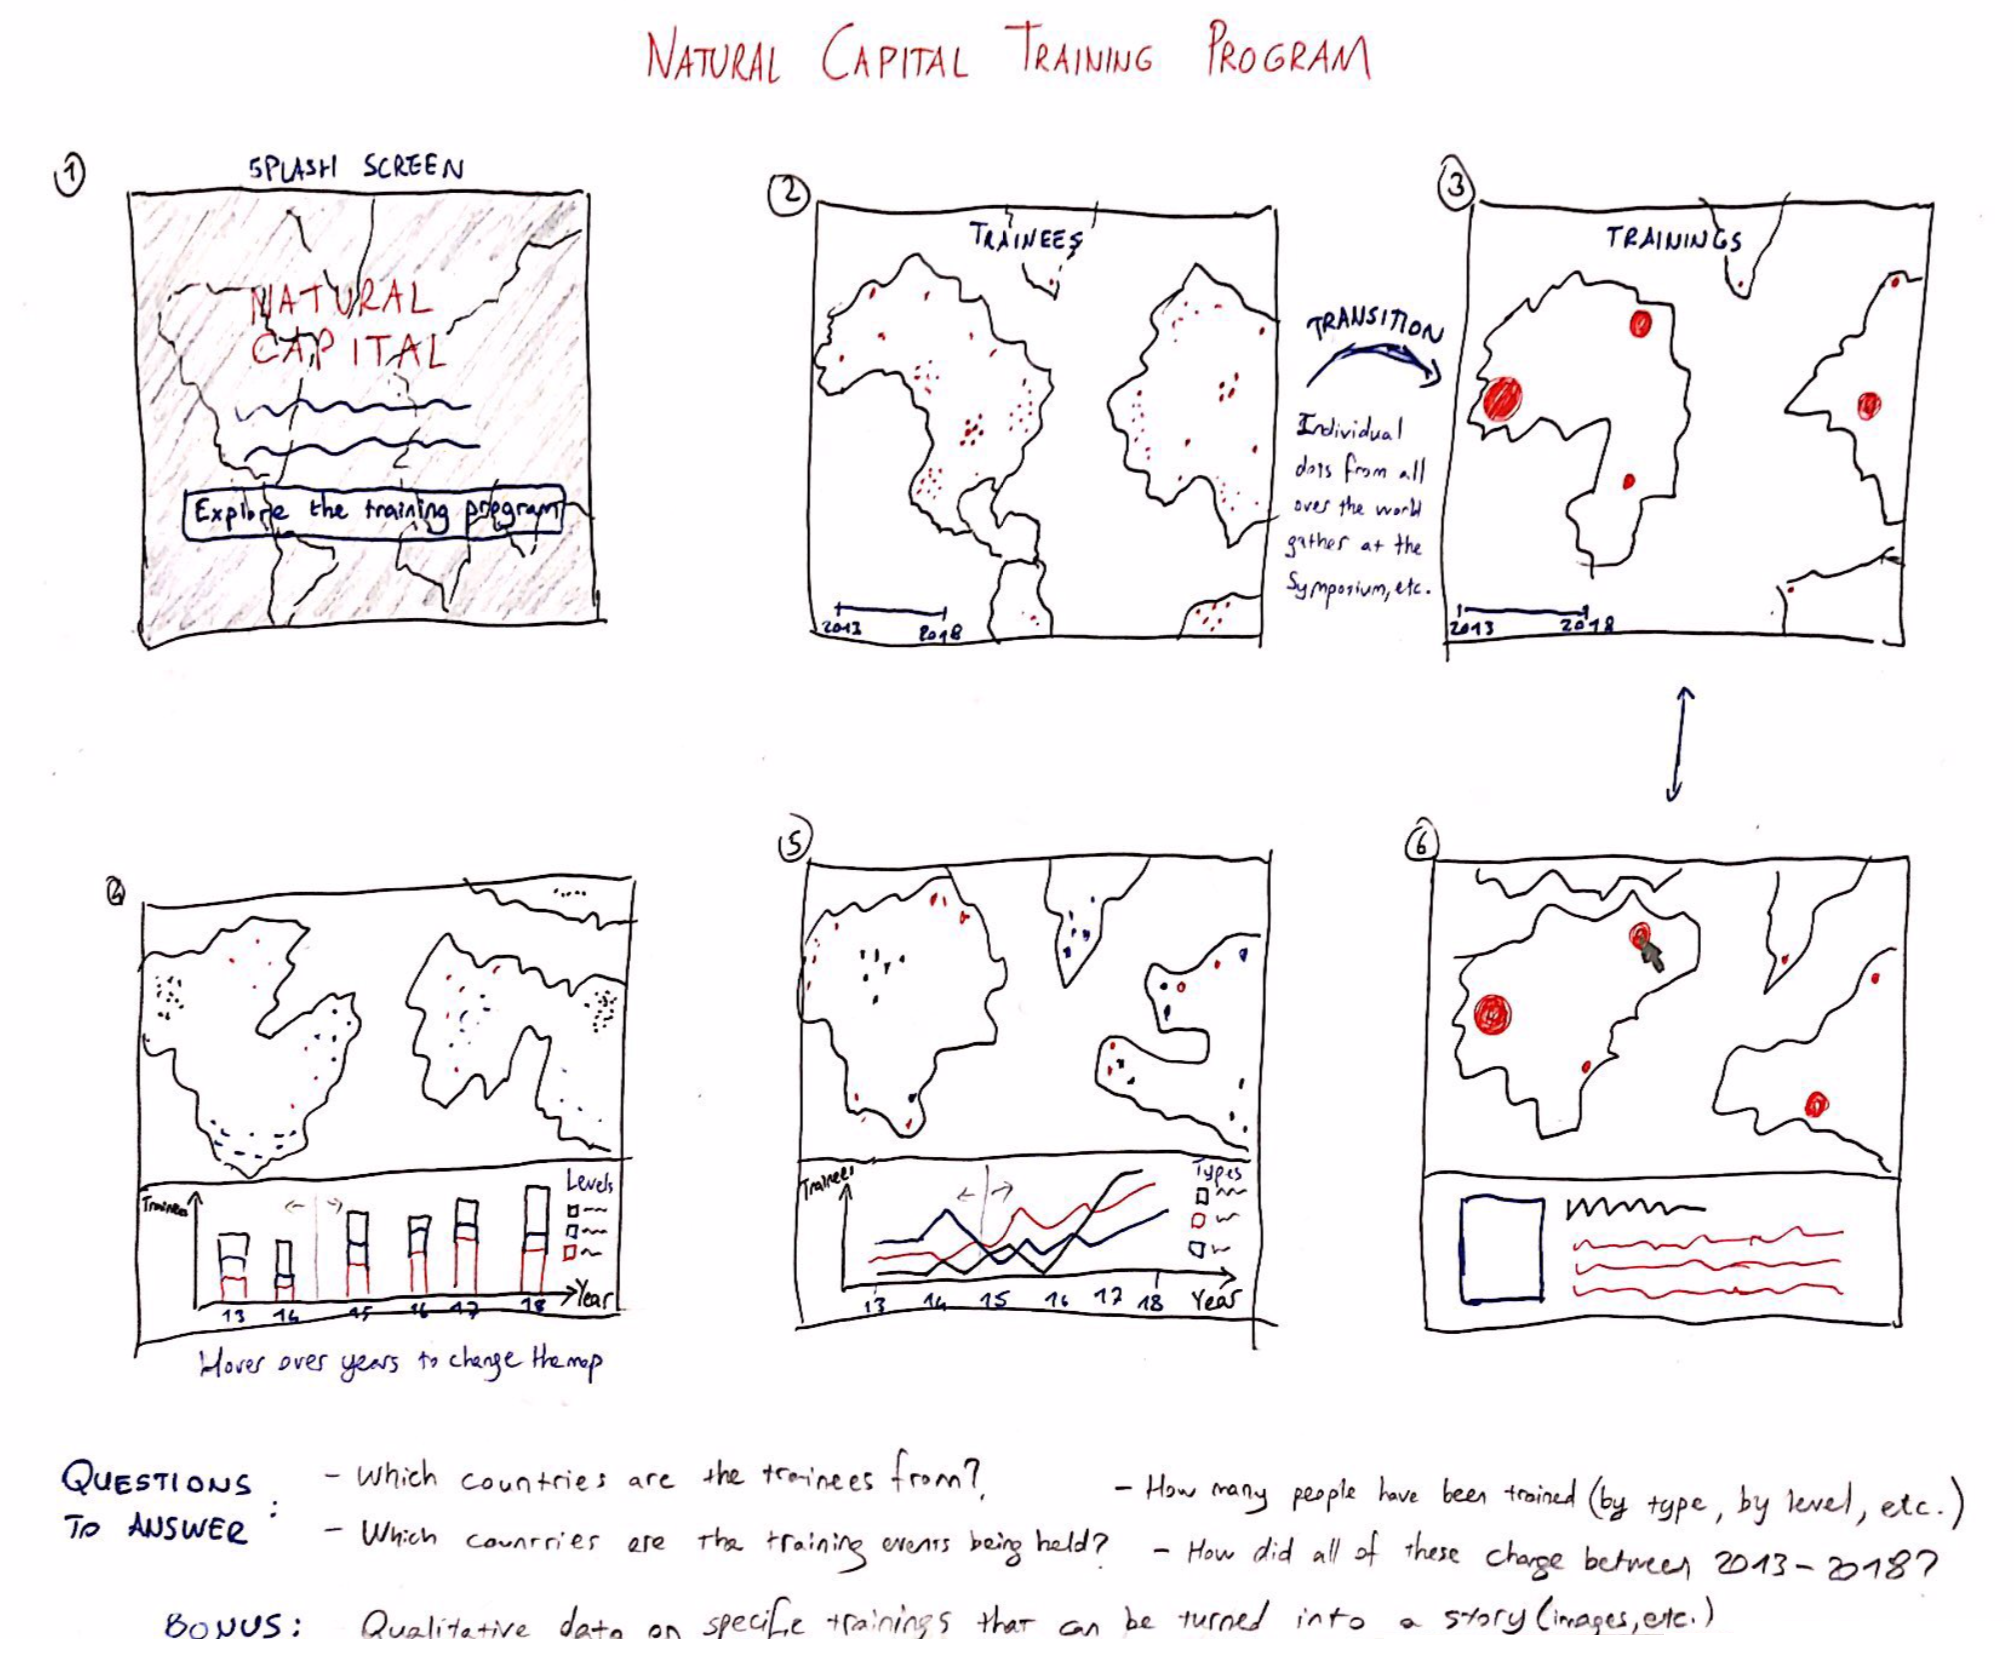 NATURAL CAPITAL TRAINING PROGRAM
1
SPLASH SCREEN
NATURAL
CAPITAL
Explore the training program
2
TRAINEES
2013 2018
TRANSITION
Individual
dots from all
over the world
gather at the
Symposium, etc.
3
TRAININGS
2013 2018
4
Trainees
Levels
13 14 15 16 17 18 Year
Hover over years to change the map
5
Trainees
Types
13 14 15 16 17 18 Year
6
QUESTIONS
TO ANSWER :
- Which countries are the trainees from?
- Which countries are the training events being held?
- How many people have been trained (by type, by level, etc.)
- How did all of these change between 2013-2018?
BONUS: Qualitative data on specific trainings that can be turned into a story (images, etc.)